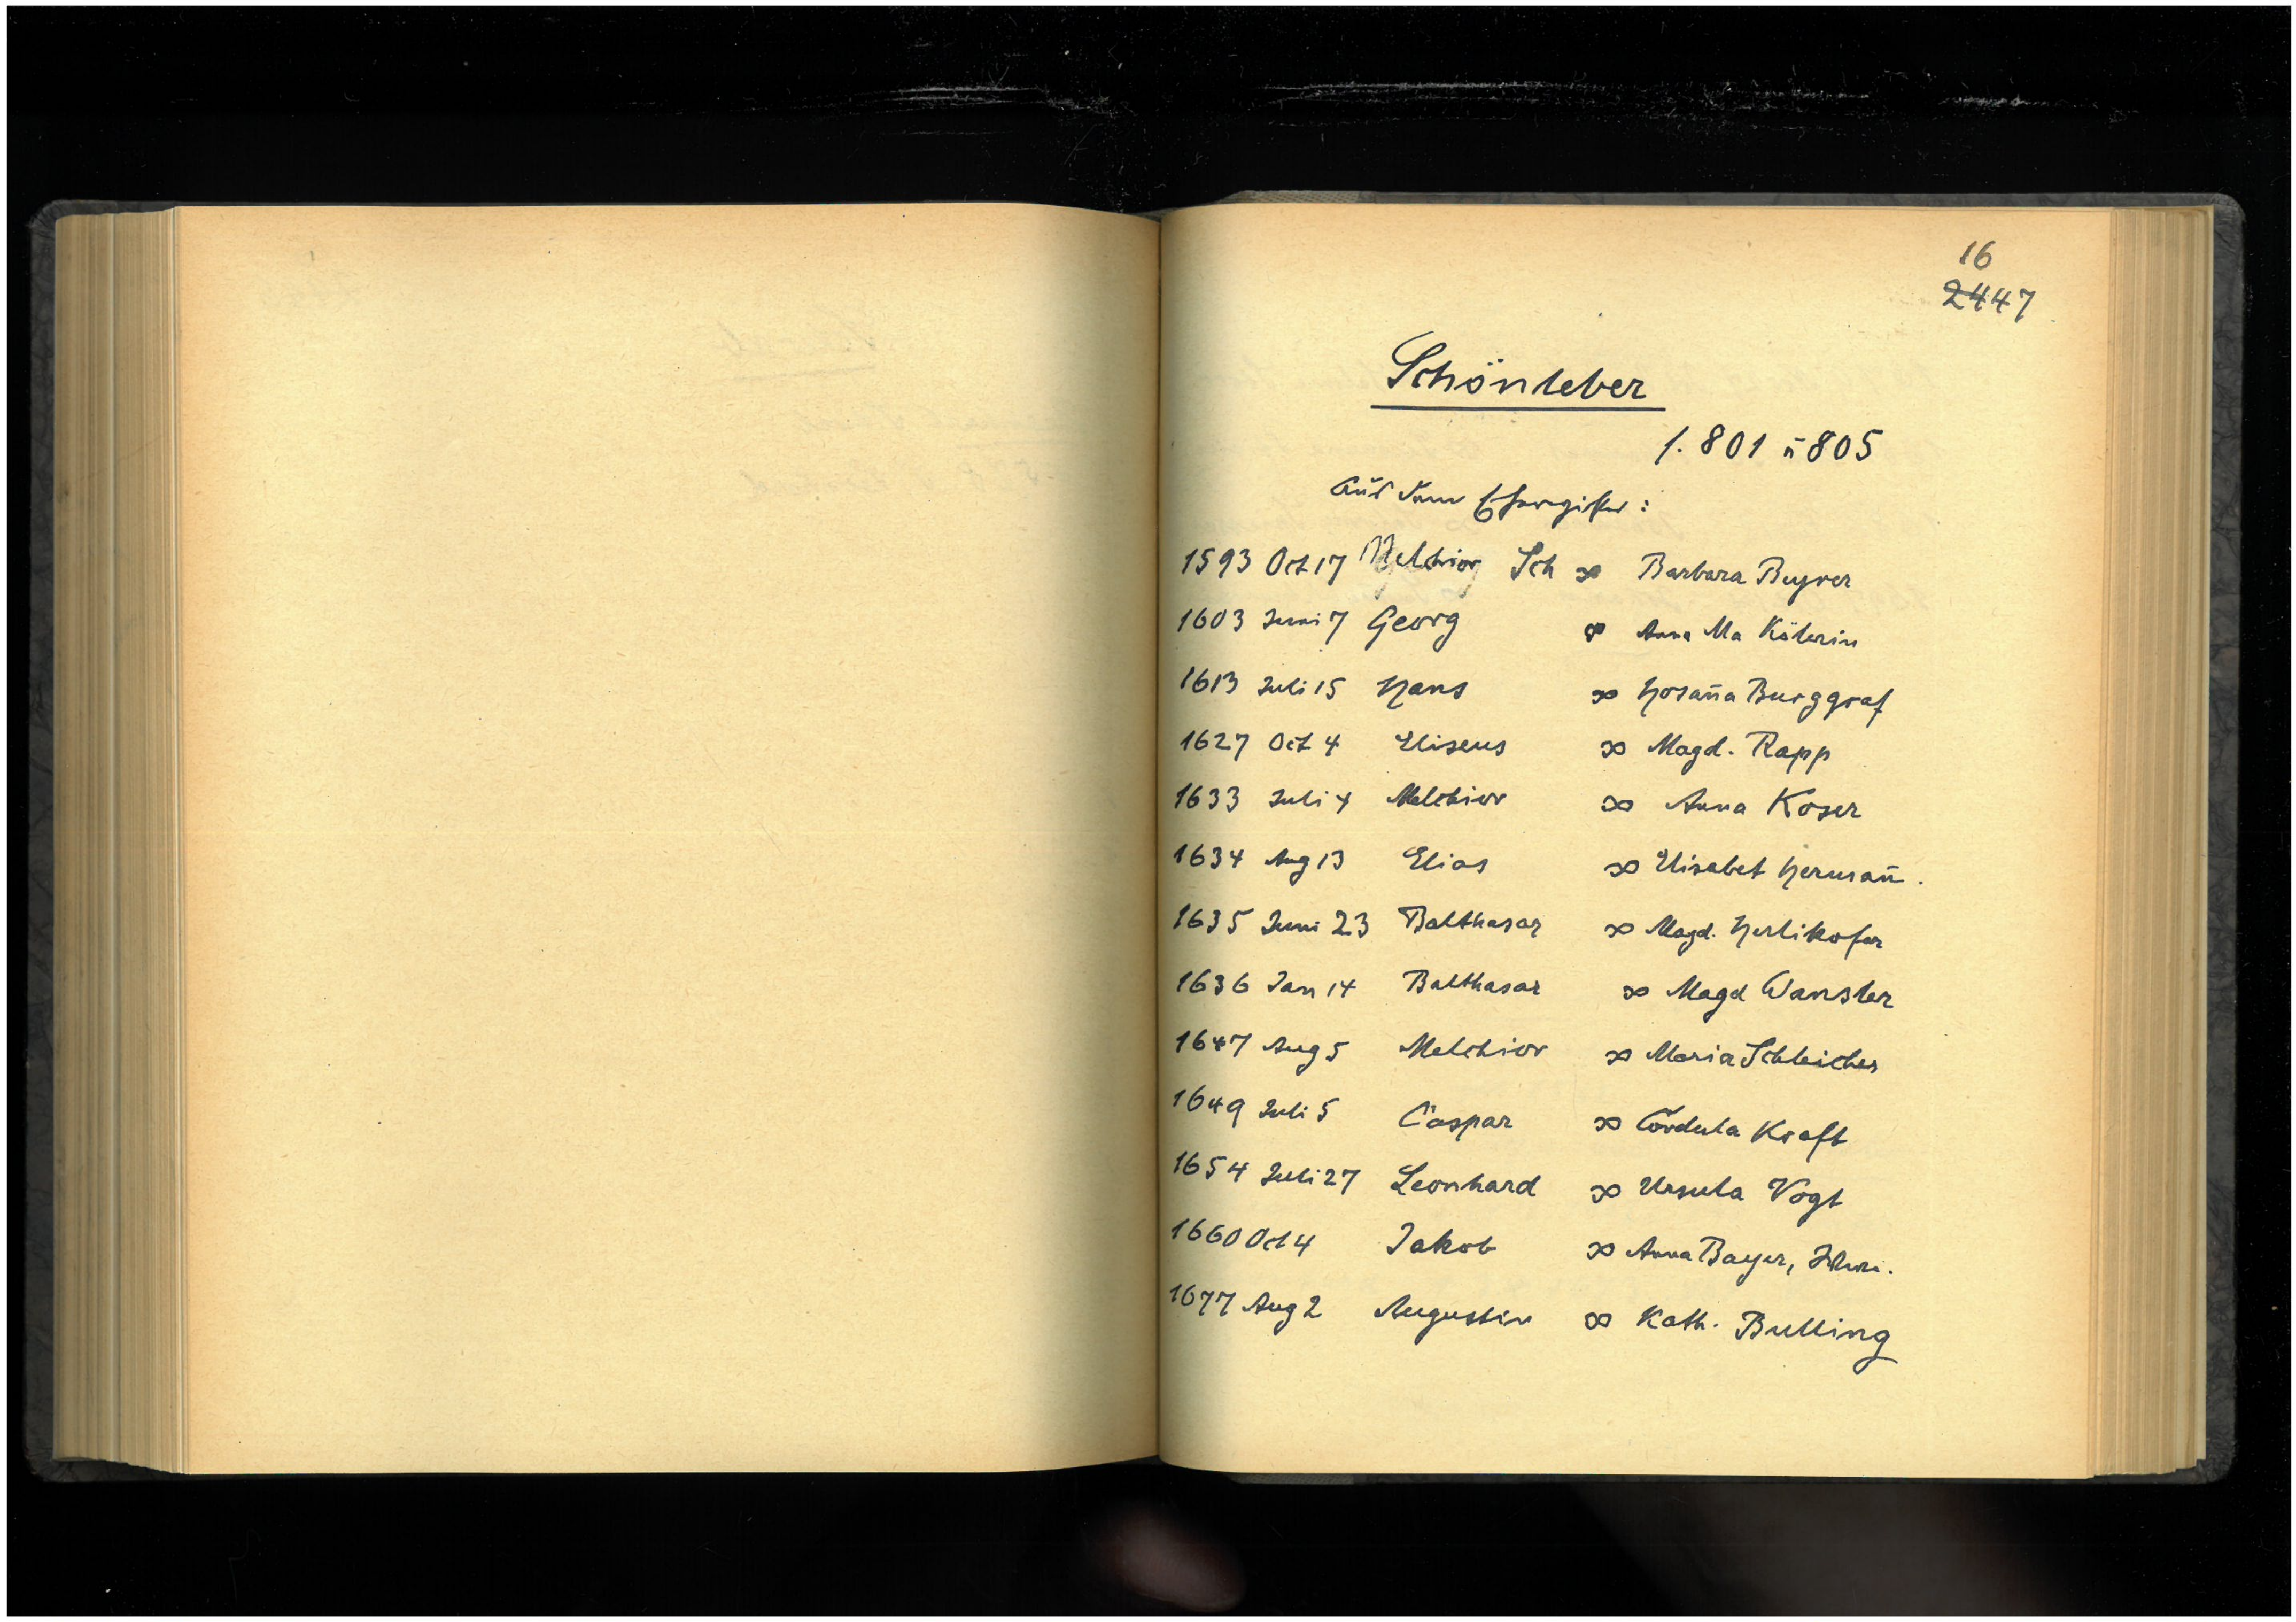 16
2447
Schönleber
1. 801 u 805
Aus dem Eheregister:
1593 Oct 17 Melchior Sch ∞ Barbara Beyrer
1603 Juni 7 Georg ∞ Anna Ma Kölerin
1613 Juli 15 Hans ∞ Hosan̄a Burggraf
1627 Oct 4 Eliseus ∞ Magd. Rapp
1633 Juli 4 Melchior ∞ Anna Koser
1634 Aug 13 Elias ∞ Elisabet Herman̄.
1635 Juni 23 Balthasar ∞ Magd. Herlikofer
1636 Jan 14 Balthasar ∞ Magd Wansler
1647 Aug 5 Melchior ∞ Maria Schleicher
1649 Juli 5 Caspar ∞ Cordula Kraft
1654 Juli 27 Leonhard ∞ Ursula Vogt
1660 Oct 4 Jakob ∞ Anna Bayer,
1677 Aug 2 Augustin ∞ Kath. Bulling